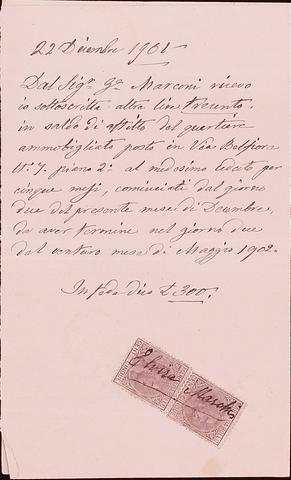 22 Dicembre 1901
Dal Sigr. Ga. Marconi ricevo
io sottoscritta altre lire trecento,
in saldo di affitto del quartiere
ammobigliato posto in Via Belfiore
No. 7. piano 2o. al medesimo ceduto per
cinque mesi, cominciati dal giorno
due del presente mese di Decembre,
da aver termine nel giorno due
del venturo mese di Maggio 1902.
In fede dico £ 300.
Elvira